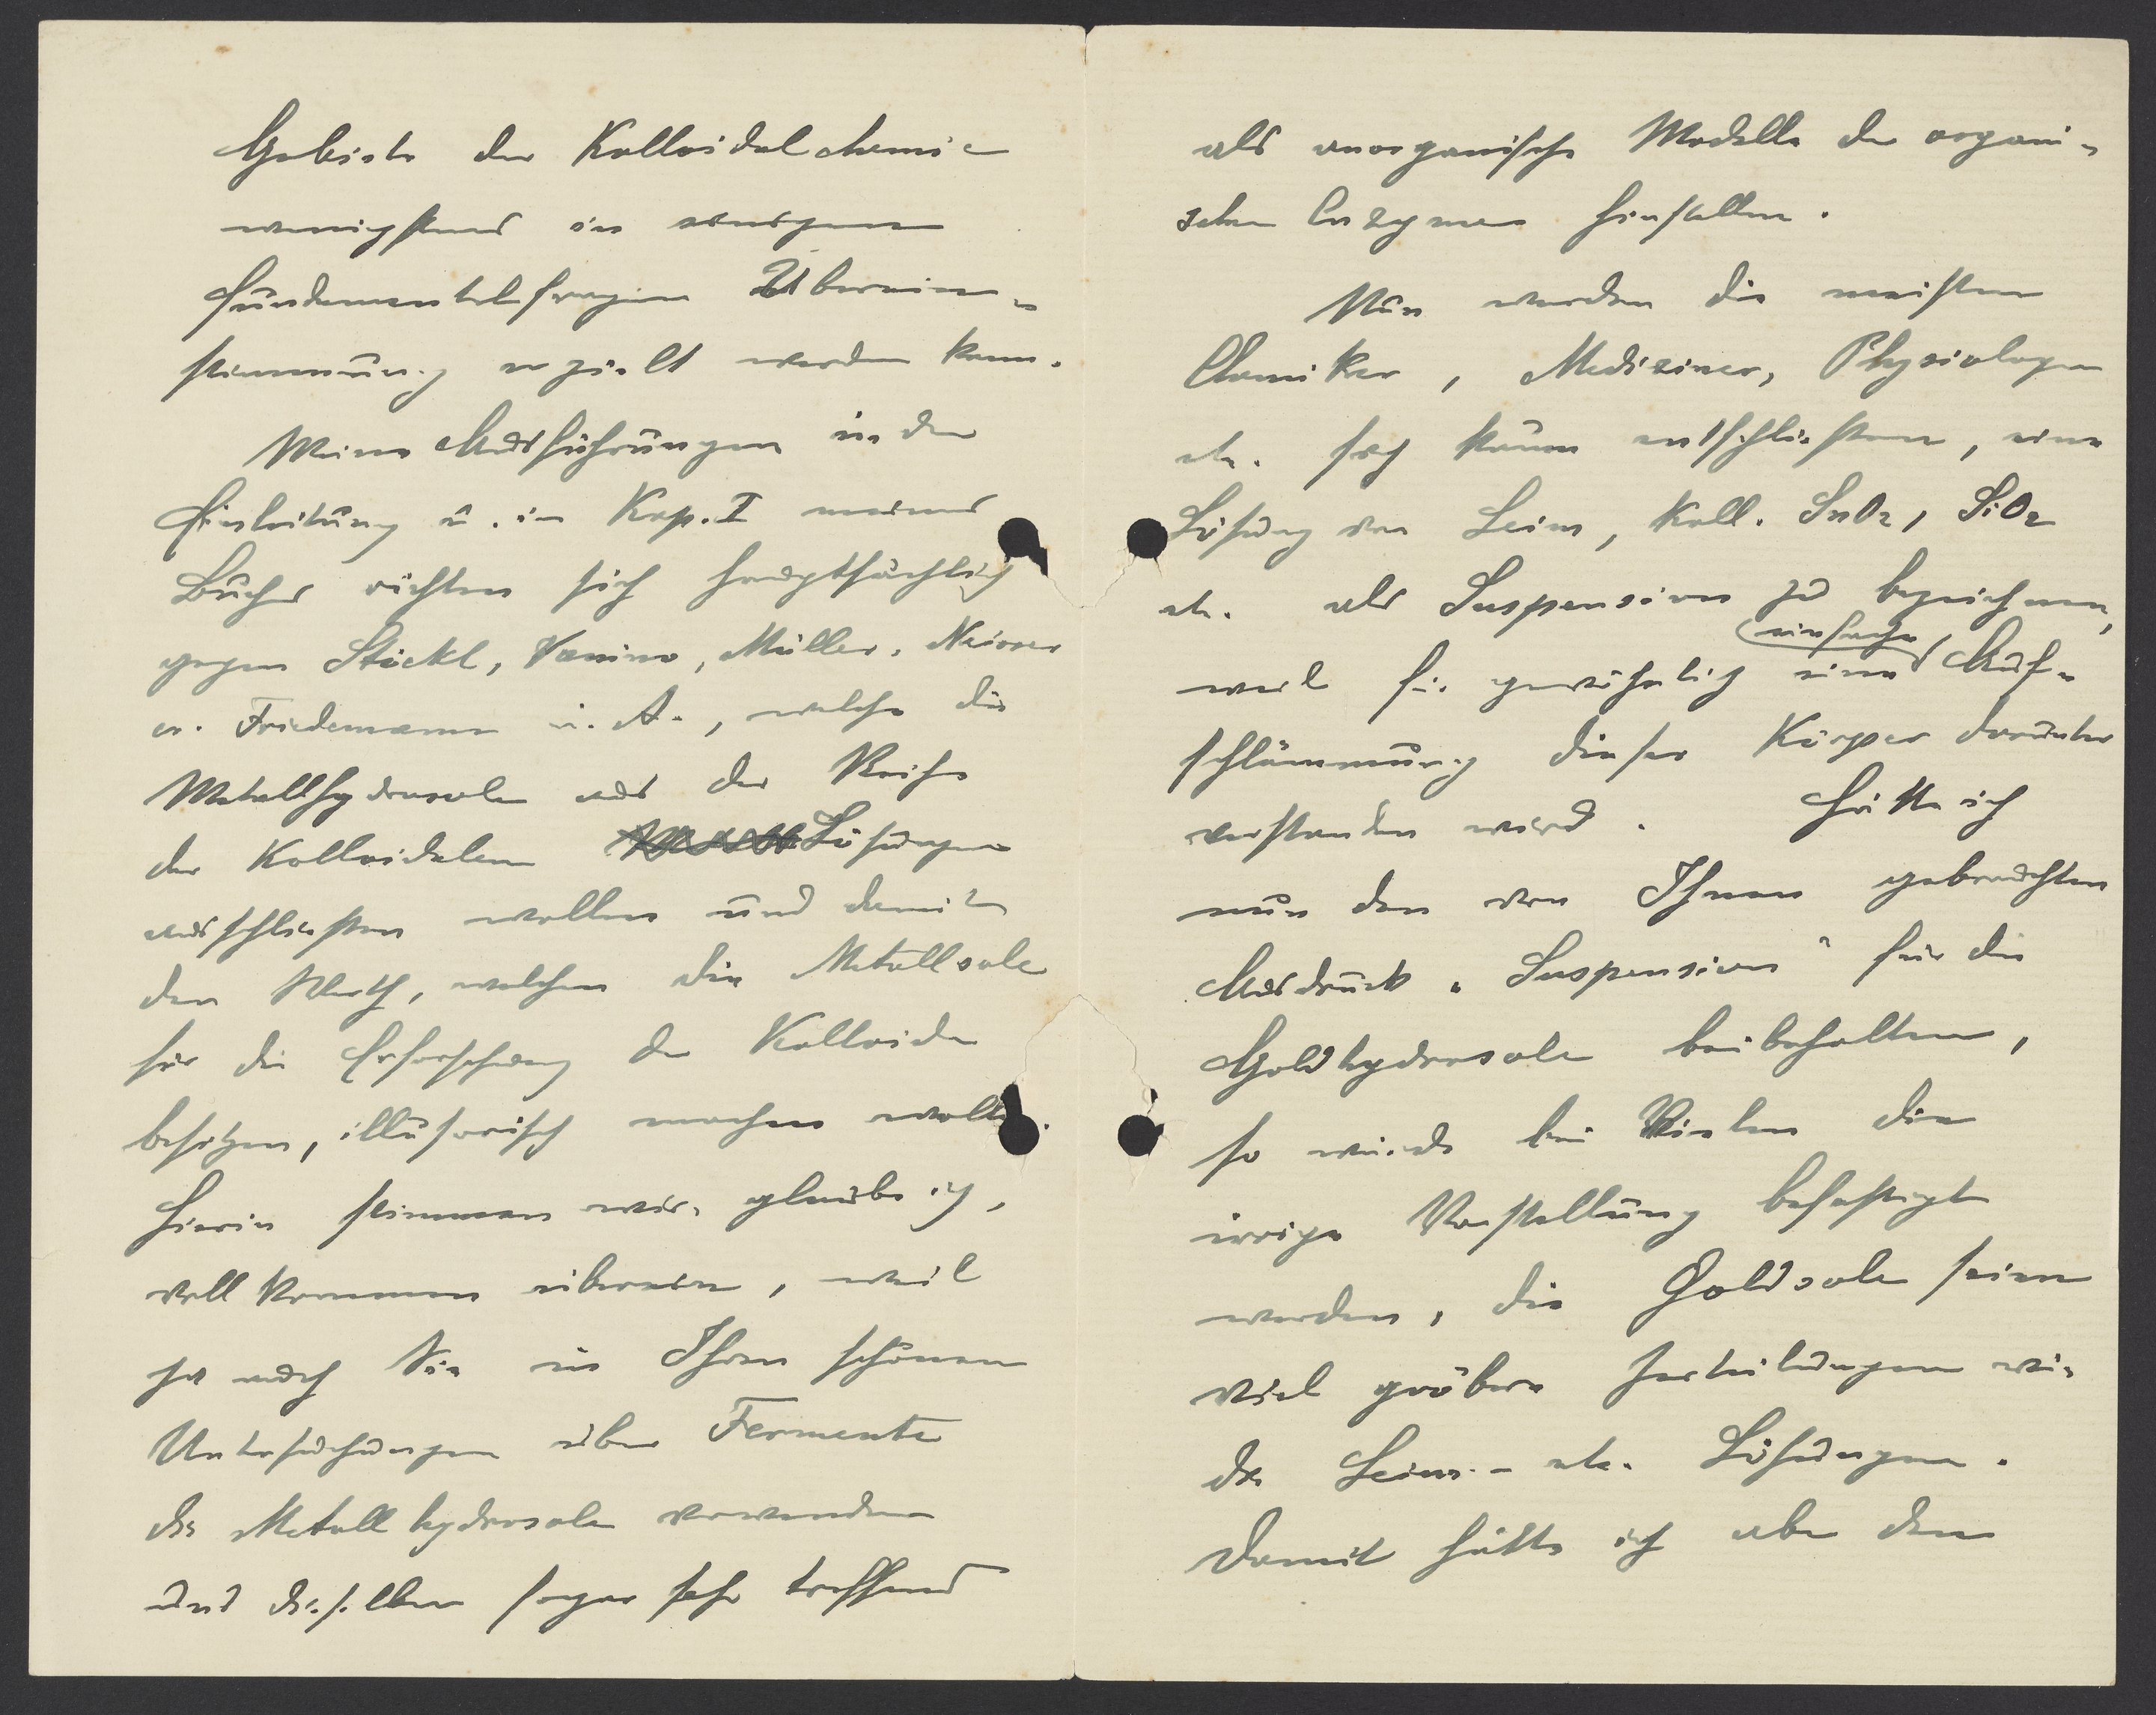 Gebiete der Kolloidalchemie
wenigstens in einigen
Fundamentalfragen Überein-
stimmung erzielt werden kann.
Meine Ausführungen in der
Einleitung u. im Kap. I meines
Buches richten sich hauptsächlich
gegen Stöckl, Vanino, Müller, Neisser
u. Friedemann u. A., welche die
Metallhydrosole aus der Reihe
der Kolloidalen Lösungen
ausschliessen wollen und damit
den Werth, welchen die Metallsole
für die Erforschung der Kolloide
besitzen, illusorisch machen wollen.
Hierin stimmen wir, glaube ich,
vollkommen überein, weil
ja auch Sie in Ihren schönen
Untersuchungen über Fermente
die Metallhydrosole verwenden
und dieselben sogar sehr treffend
als anorganische Modelle der organi-
schen Enzyme hinstellen.
Nun werden die meisten
Chemiker, Mediziner, Physiologen
etc. sich kaum entschliessen, eine
Lösung von Leim, koll. SnO2, SiO2
etc. als Suspension zu bezeichnen,
weil für gewöhnlich eine einfache Auf-
schlämmung dieser Körper darunter
verstanden wird. Hätte ich
nun den von Ihnen gebrauchten
Ausdruck „Suspension" für die
Goldhydrosole beibehalten,
so würde bei Vielen die
irrige Vorstellung befestigt
werden, die Goldsole seien
viel gröbere Zerteilungen wie
die Leim- etc. Lösungen.
Damit hätte ich aber den